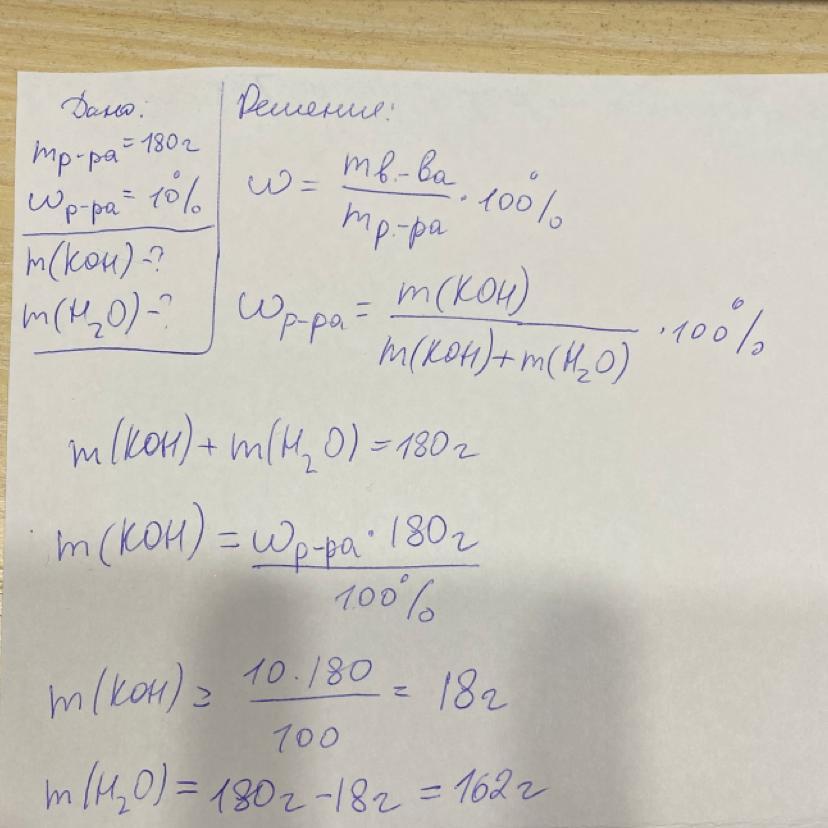 Дано:
mр-ра = 180г
ωр-ра = 10%
m(KOH) -?
m(H₂O) -?
Решение:
ω = mв.-ва / mр.-ра · 100%
ωр-ра = m(KOH) / m(KOH) + m(H₂O) · 100%
m(KOH) + m(H₂O) = 180г
m(KOH) = ωр-ра · 180г / 100%
m(KOH) = 10 · 180 / 100 = 18г
m(H₂O) = 180г - 18г = 162г